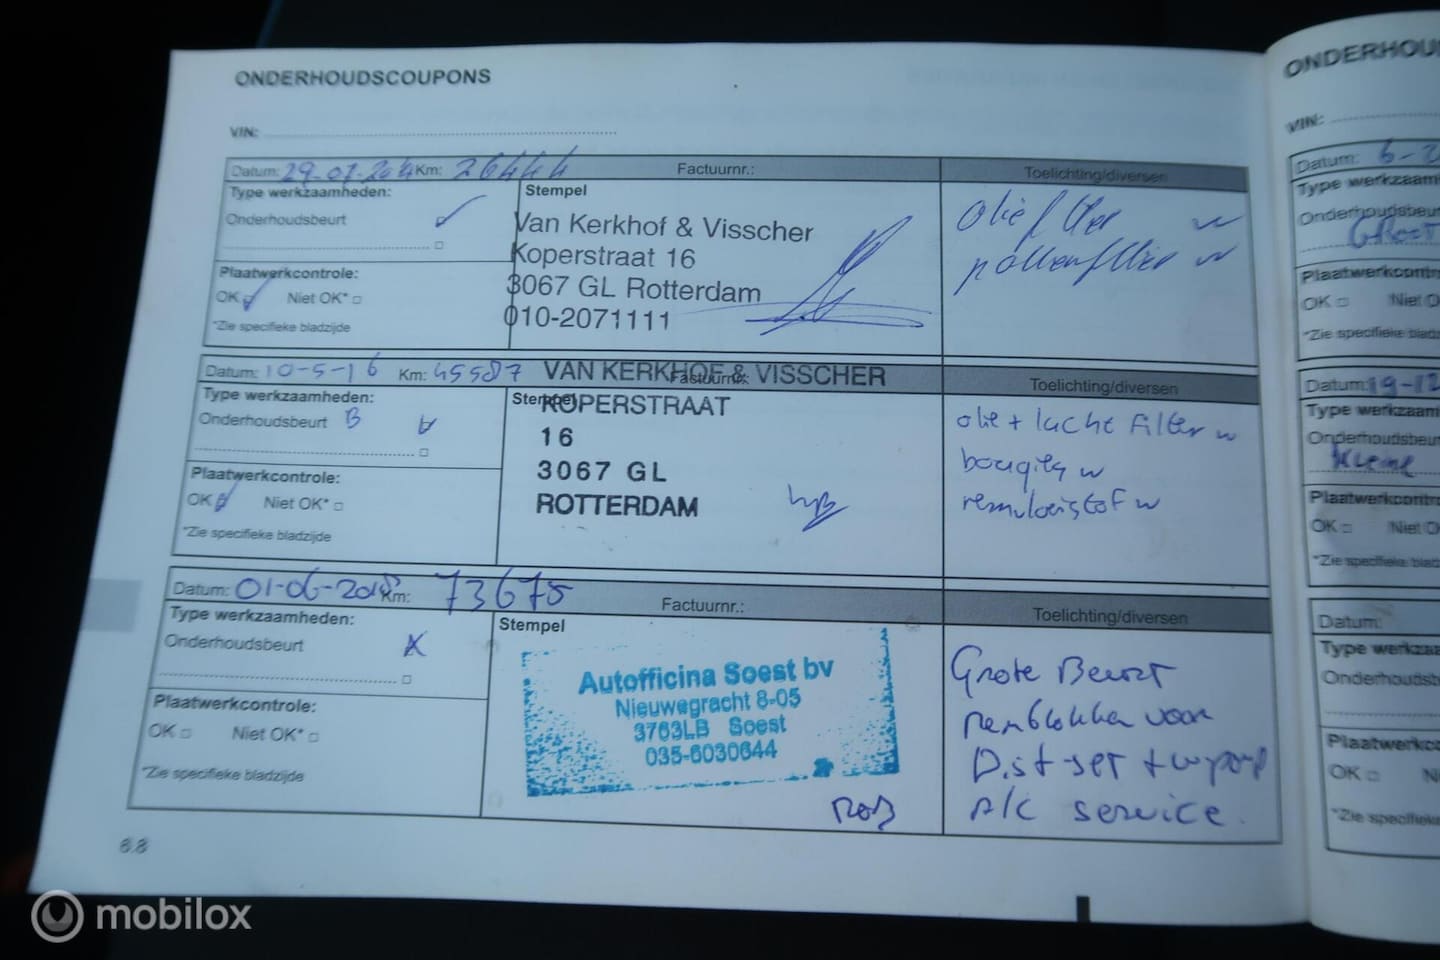 ONDERHOUDSCOUPONS
VIN:
Datum: 29-07-2014 Km: 26444 Factuurnr.: Toelichting/diversen
Type werkzaamheden:
Stempel
Onderhoudsbeurt
Plaatwerkcontrole:
OK Niet OK*
*Zie specifieke bladzijde
Van Kerkhof & Visscher
Koperstraat 16
3067 GL Rotterdam
010-2071111
oliefilter
pollenfilter
Datum: 10-5-16 Km: 45587 Factuurnr.: Toelichting/diversen
Type werkzaamheden:
Stempel
Onderhoudsbeurt B
Plaatwerkcontrole:
OK Niet OK*
*Zie specifieke bladzijde
VAN KERKHOF & VISSCHER
KOPERSTRAAT
16
3067 GL
ROTTERDAM
olie + lucht filter
bougies
remvloeistof
Datum: 01-06-2018 Km: 73678 Factuurnr.: Toelichting/diversen
Type werkzaamheden:
Stempel
Onderhoudsbeurt
Plaatwerkcontrole:
OK Niet OK*
*Zie specifieke bladzijde
Autofficina Soest bv
Nieuwegracht 8-05
3763LB Soest
035-6030644
Rob
Grote Beurt
remblokken voor
Dist-set + wpomp
A/C service.
6.8
ONDERHOU
VIN:
Datum: 6-2
Type werkzaam
Onderhoudsbeu
Groot
Plaatwerkcontr
OK Niet O
*Zie specifieke
Datum: 19-12
Type werkzaam
Onderhoudsbeu
Kleine
Plaatwerkcontr
OK Niet O
*Zie specifieke
Datum:
Type werkzaa
Onderhoudsbe
Plaatwerkc
OK N
*Zie specifieke
mobilox